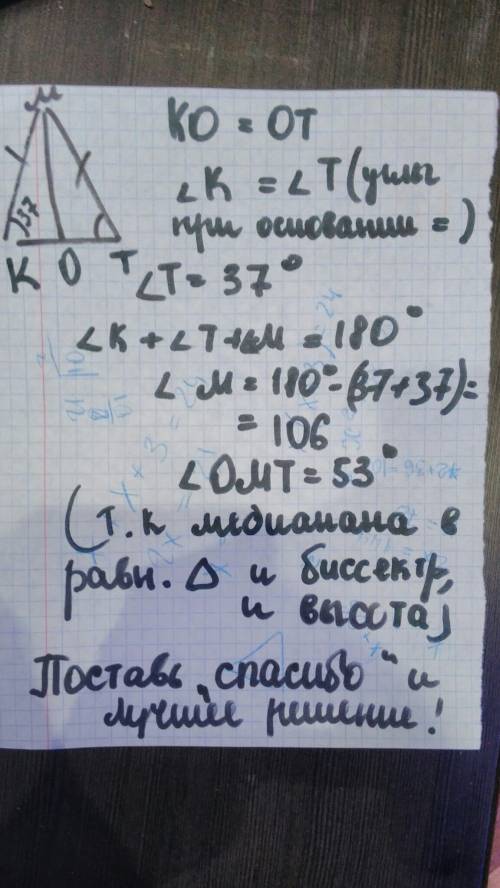 М
37
К О Т
КО = ОТ
∠К = ∠Т (углы
при основании =)
∠Т = 37°
∠К + ∠Т + ∠М = 180°
∠М = 180° - (37+37) =
= 106
∠ОМТ = 53°
(т.к медианана в
равн. △ и биссектр,
и высота)
Поставь "спасибо" и
лучшее решение!